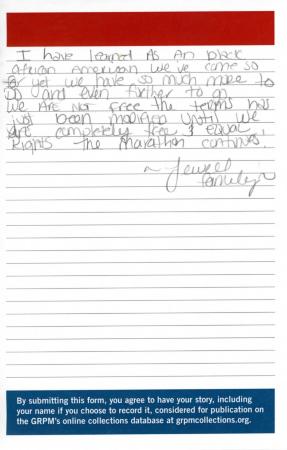 I have learned As An black
African American we've come so
far yet we have so much more to
go and even further to go
We ARE NOT free the terms has
just been modified Until we
are completely free & equal
Rights The Marathon continues.
~ Jewell
By submitting this form, you agree to have your story, including
your name if you choose to record it, considered for publication on
the GRPM's online collections database at grpmcollections.org.